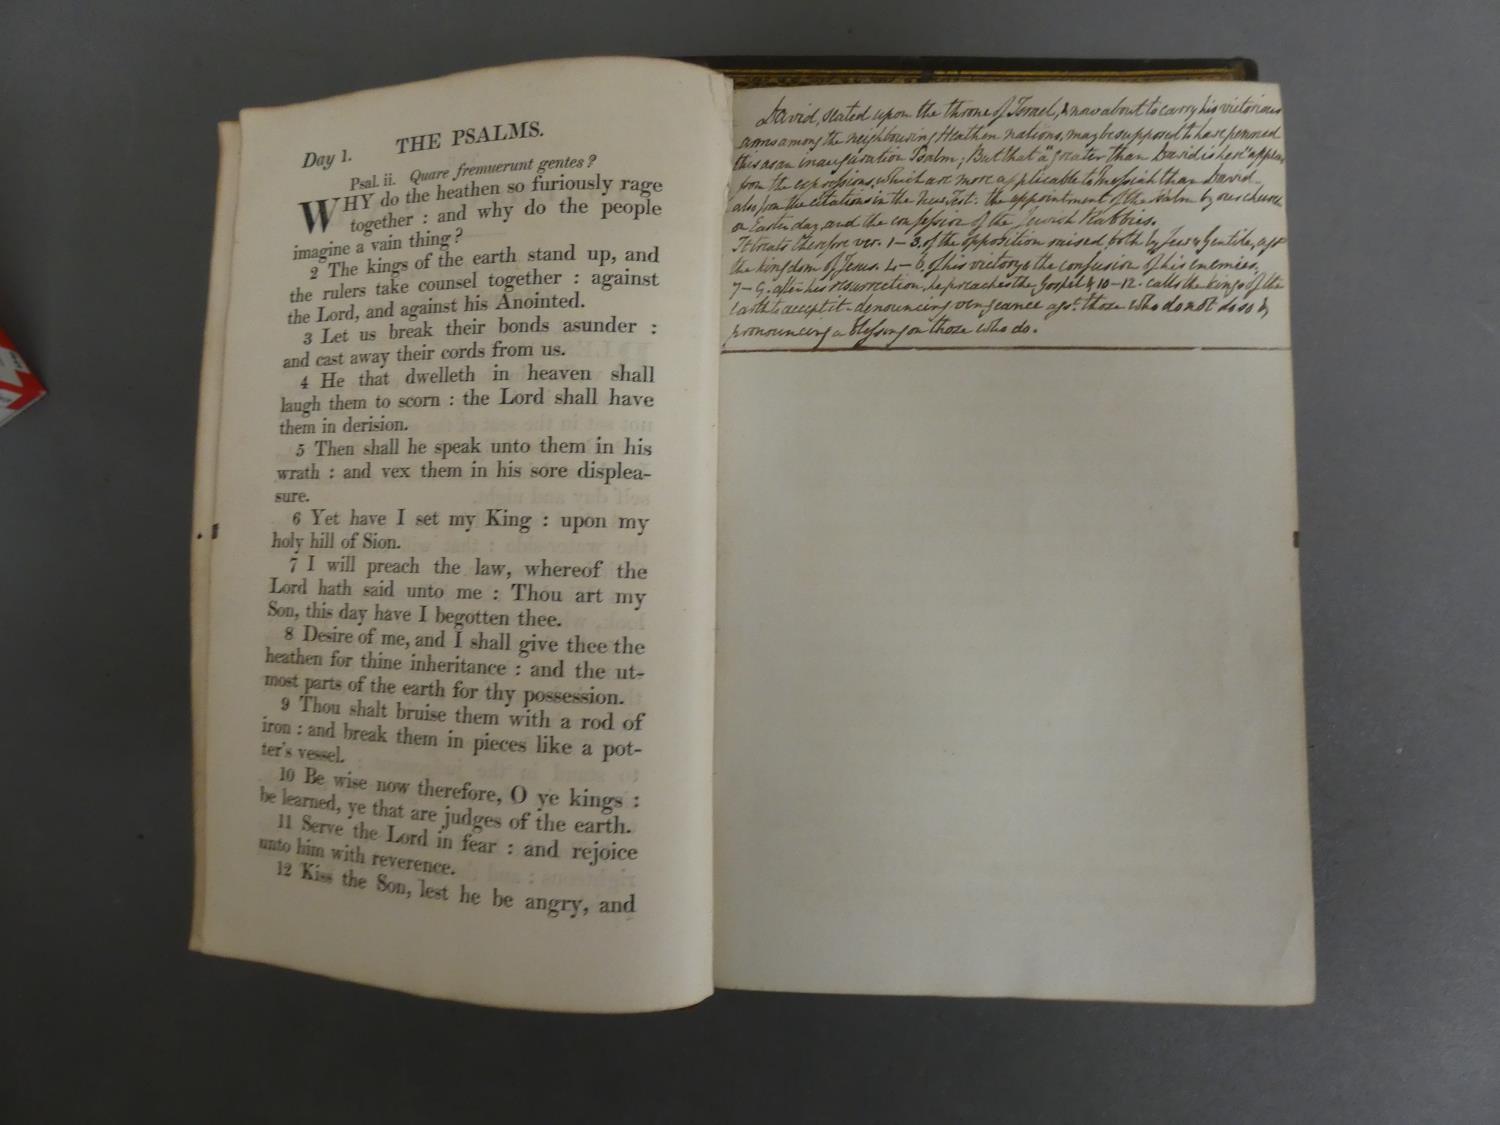 Day 1. THE PSALMS.
Psal. ii. Quare fremuerunt gentes?
WHY do the heathen so furiously rage
together : and why do the people
imagine a vain thing?
2 The kings of the earth stand up, and
the rulers take counsel together : against
the Lord, and against his Anointed.
3 Let us break their bonds asunder :
and cast away their cords from us.
4 He that dwelleth in heaven shall
laugh them to scorn : the Lord shall have
them in derision.
5 Then shall he speak unto them in his
wrath : and vex them in his sore displea-
sure.
6 Yet have I set my King : upon my
holy hill of Sion.
7 I will preach the law, whereof the
Lord hath said unto me : Thou art my
Son, this day have I begotten thee.
8 Desire of me, and I shall give thee the
heathen for thine inheritance : and the ut-
most parts of the earth for thy possession.
9 Thou shalt bruise them with a rod of
iron : and break them in pieces like a pot-
ter's vessel.
10 Be wise now therefore, O ye kings :
be learned, ye that are judges of the earth.
11 Serve the Lord in fear : and rejoice
unto him with reverence.
12 Kiss the Son, lest he be angry, and
David, seated upon the throne of Israel, & now about to carry his victorious
arms among the neighbouring Heathen nations, may be supposed to have penned
this as an inauguration Psalm; But that a "greater than David is here" appears
from the expressions, which are more applicable to Messiah than David—
also from the citations in the New Test: the appointment of the Psalm by our church
on Easter day, and the confession of the Jewish Rabbies.
It treats therefore ver. 1-3. of the opposition raised both by Jew & Gentile, agst
the kingdom of Jesus. 4-6. of his victory & the confusion of his enemies.
7-9. after his resurrection, he preaches the Gospel & 10-12. calls the kings of the
Earth to accept it- denouncing vengeance agst. those who do not do so &
pronouncing a blessing on those who do.